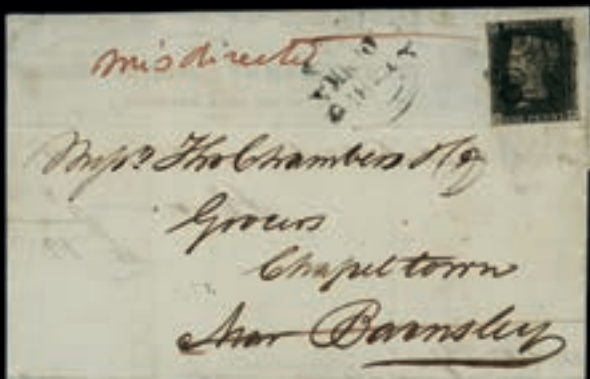 misdirected
Messrs. Tho Chambers & Co
Grocers
Chapeltown
Near Barnsley